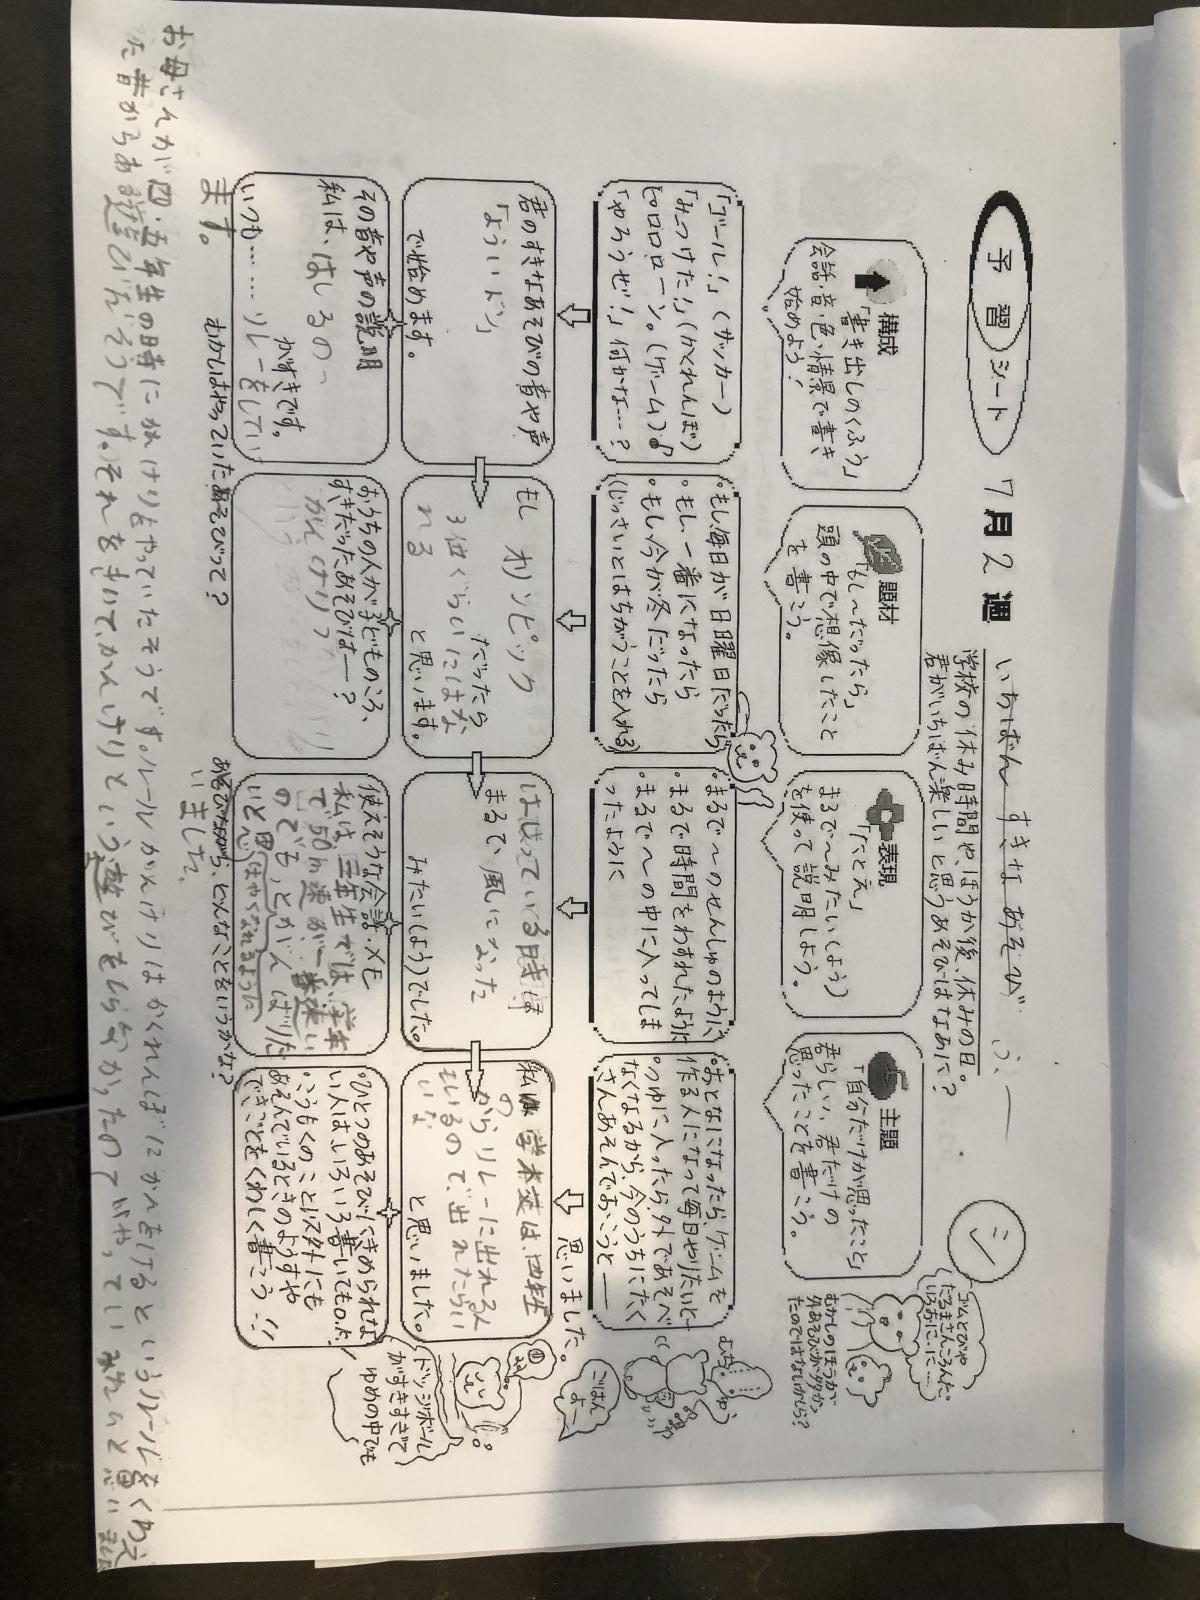 予習シート
7月2週
いちばん すきな あそび
学校の休み時間や、ほうか後、休みの日。
君がいちばん楽しいと思うあそびはなあに?
シ
ゴムとびや
だるまさんころんだ。
いろおにに……
むかしのほうが
外あそびが多かっ
たのではないかしら?
構成
「書き出しのくふう」
会話・音・色・情景で書き
始めよう!
題材
「もし〜だったら」
頭の中で想像したこと
を書こう。
表現
「たとえ」
まるで〜みたい(しよう)
を使って説明しよう。
主題
「自分だけが思ったこと」
君らしい、君だけの
思ったことを書こう。
「ゴール!」(サッカー)
「みつけた!」(かくれんぼ)
ピロロローン。(ゲーム)♪
「やろうぜ!」何かな…?
・もし、毎日が日曜日だったら
・もし、一番になったら
・もし、今が冬だったら
(じっさいとはちがうことを入れる)
・まるで〜のせんしゅのように
・まるで時間をわすれたように
・まるで〜の中に入ってしま
ったように
・おとなになったら、ゲームを
作る人になって毎日やりたいと—
・つゆに入ったら、外であそべ
なくなるから、今のうちにたく
さんあそんでおこうと——
思いました。
ごはん
よー
君のすきなあそびの音や声
「よういドン」
で始めます。
もし オリンピック
だったら
3位ぐらいにはな
れる と思います。
はしっている時は
まるで、風になった
みたい(しよう)でした。
私は 学校は、四年生
の からリレーに出れる人
いるので、出れたらいい
な と思いました。
その音や声の説明
私は、はしるの
がすきです。
いつも…… リレーをしてい
ます。
おうちの人が子どものころ、
すきだったあそびは—?
かんけり
むかしはやっていたあそびって?
使えそうな会話・メモ
私は三年生では、学年
で50m走が一番速い
ので、もっとがんばりた
いと思
はやくなれるように
いました。
あそびながら、どんなことをいうかな?
・ひとつのあそびにきめられな
い人はいろいろ書いてもO.K!
・こうもくのこと以外にも
あそんでいるときのようすや
できごとをくわしく書こう!!
ドッジボール
がすきすぎて
ゆめの中でも
お母さんが四・五年生の時にかんけりをやっていたそうです。ルールかんけりはかくれんぼにかんをけるというルールをくわえ
た昔からある遊びだそうです。それをきいて、かんけりという遊びをしらなかったので